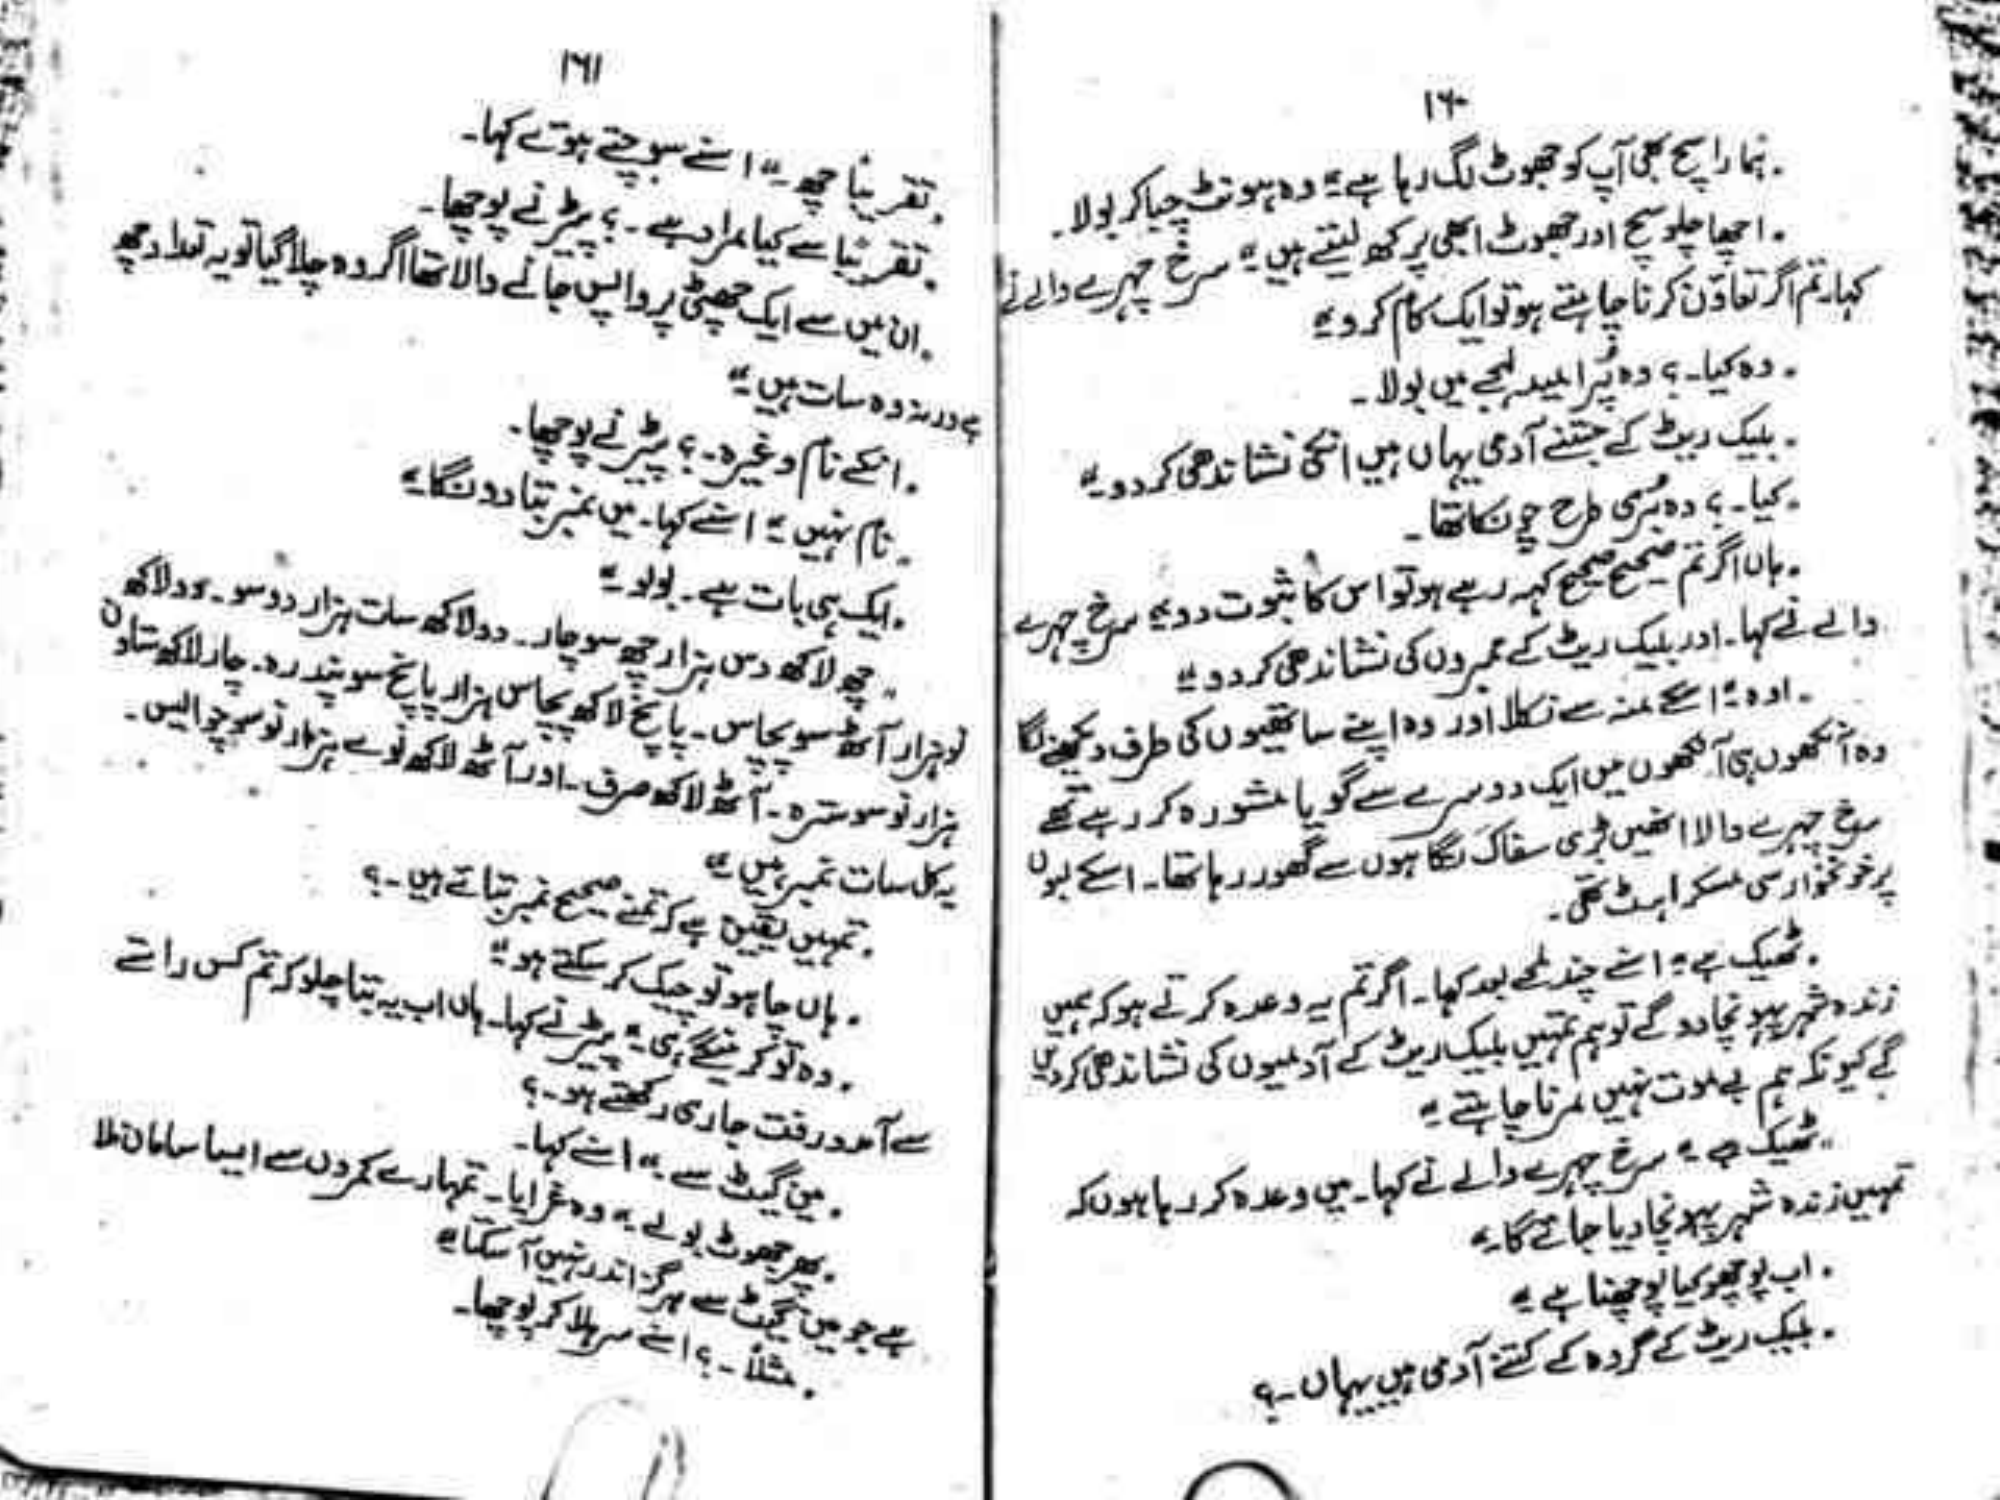 ۱۶۰
. ہمارا سچ بھی آپ کو جھوٹ لگ رہا ہے" وہ ہونٹ چبا کر بولا۔
. اچھا چلو سچ اور جھوٹ ابھی پرکھ لیتے ہیں" سرخ چہرے والے نے
کہا۔ تم اگر تعاون کرنا چاہتے ہو تو ایک کام کرو"
. وہ کیا۔؟ وہ پُرامید لہجے میں بولا۔
. بلیک ریٹ کے جتنے آدمی یہاں ہیں انکی نشاندھی کر دو"
. کیا۔؟ وہ بُری طرح چونکا تھا۔
. ہاں اگر تم صحیح صحیح کہہ رہے ہو تو اس کا ثبوت دو" سرخ چہرے
والے نے کہا۔ اور بلیک ریٹ کے ممبروں کی نشاندھی کر دو"
. اوہ" اسکے منہ سے نکلا اور وہ اپنے ساتھیوں کی طرف دیکھنے لگا
وہ آنکھوں ہی آنکھوں میں ایک دوسرے سے گویا مشورہ کر رہے تھے
سرخ چہرے والا انھیں بڑی سفاک نگاہوں سے گھور رہا تھا۔ اسکے لبوں
پر خونخوار سی مسکراہٹ تھی۔
. ٹھیک ہے" اسنے چند لمحے بعد کہا۔ اگر تم یہ وعدہ کرتے ہو کہ ہمیں
زندہ شہر پہونچا دو گے تو ہم تمہیں بلیک ریٹ کے آدمیوں کی نشاندھی کر دیں
گے کیونکہ ہم بے موت نہیں مرنا چاہتے"
. ٹھیک ہے" سرخ چہرے والے نے کہا۔ میں وعدہ کر رہا ہوں کہ
تمہیں زندہ شہر پہونچا دیا جائے گا"
. اب پوچھو کیا پوچھنا ہے"
. بلیک ریٹ کے گروہ کے کتنے آدمی ہیں یہاں۔؟
۱۶۱
. تقریباً چھ۔" اسنے سوچتے ہوئے کہا۔
. تقریباً سے کیا مراد ہے۔؟ پیٹر نے پوچھا۔
. ان میں سے ایک چھٹی پر واپس جانے والا تھا اگر وہ چلا گیا تو یہ تعداد چھ
ہے ورنہ وہ سات ہیں"
. انکے نام وغیرہ۔؟ پیٹر نے پوچھا۔
. نام نہیں" اسنے کہا۔ میں نمبر بتا دونگا"
. ایک ہی بات ہے۔ بولو"
. چھ لاکھ دس ہزار چھ سو چار۔ دو لاکھ سات ہزار دو سو۔ دو لاکھ
نو ہزار آٹھ سو پچاس۔ پانچ لاکھ پچاس ہزار پانچ سو پندرہ۔ چار لاکھ ستاون
ہزار نو سو سترہ۔ آٹھ لاکھ صرف۔ اور آٹھ لاکھ نوے ہزار نو سو چوالیس۔
یہ کل سات نمبر ہیں"
. تمہیں یقین ہے کہ تمنے صحیح نمبر بتائے ہیں۔؟
. ہاں چاہو تو چیک کر سکتے ہو"
. وہ تو کرینگے ہی" پیٹر نے کہا۔ ہاں اب یہ بتا چلو کہ تم کس راستے
سے آمد و رفت جاری رکھتے ہو۔؟
. مین گیٹ سے" اسنے کہا۔
. پھر جھوٹ بولے" وہ غرایا۔ تمہارے کمروں سے ایسا سامان ملا
ہے جو مین گیٹ سے ہرگز اندر نہیں آ سکتا"
. مثلاً۔؟ اسنے سر ہلا کر پوچھا۔